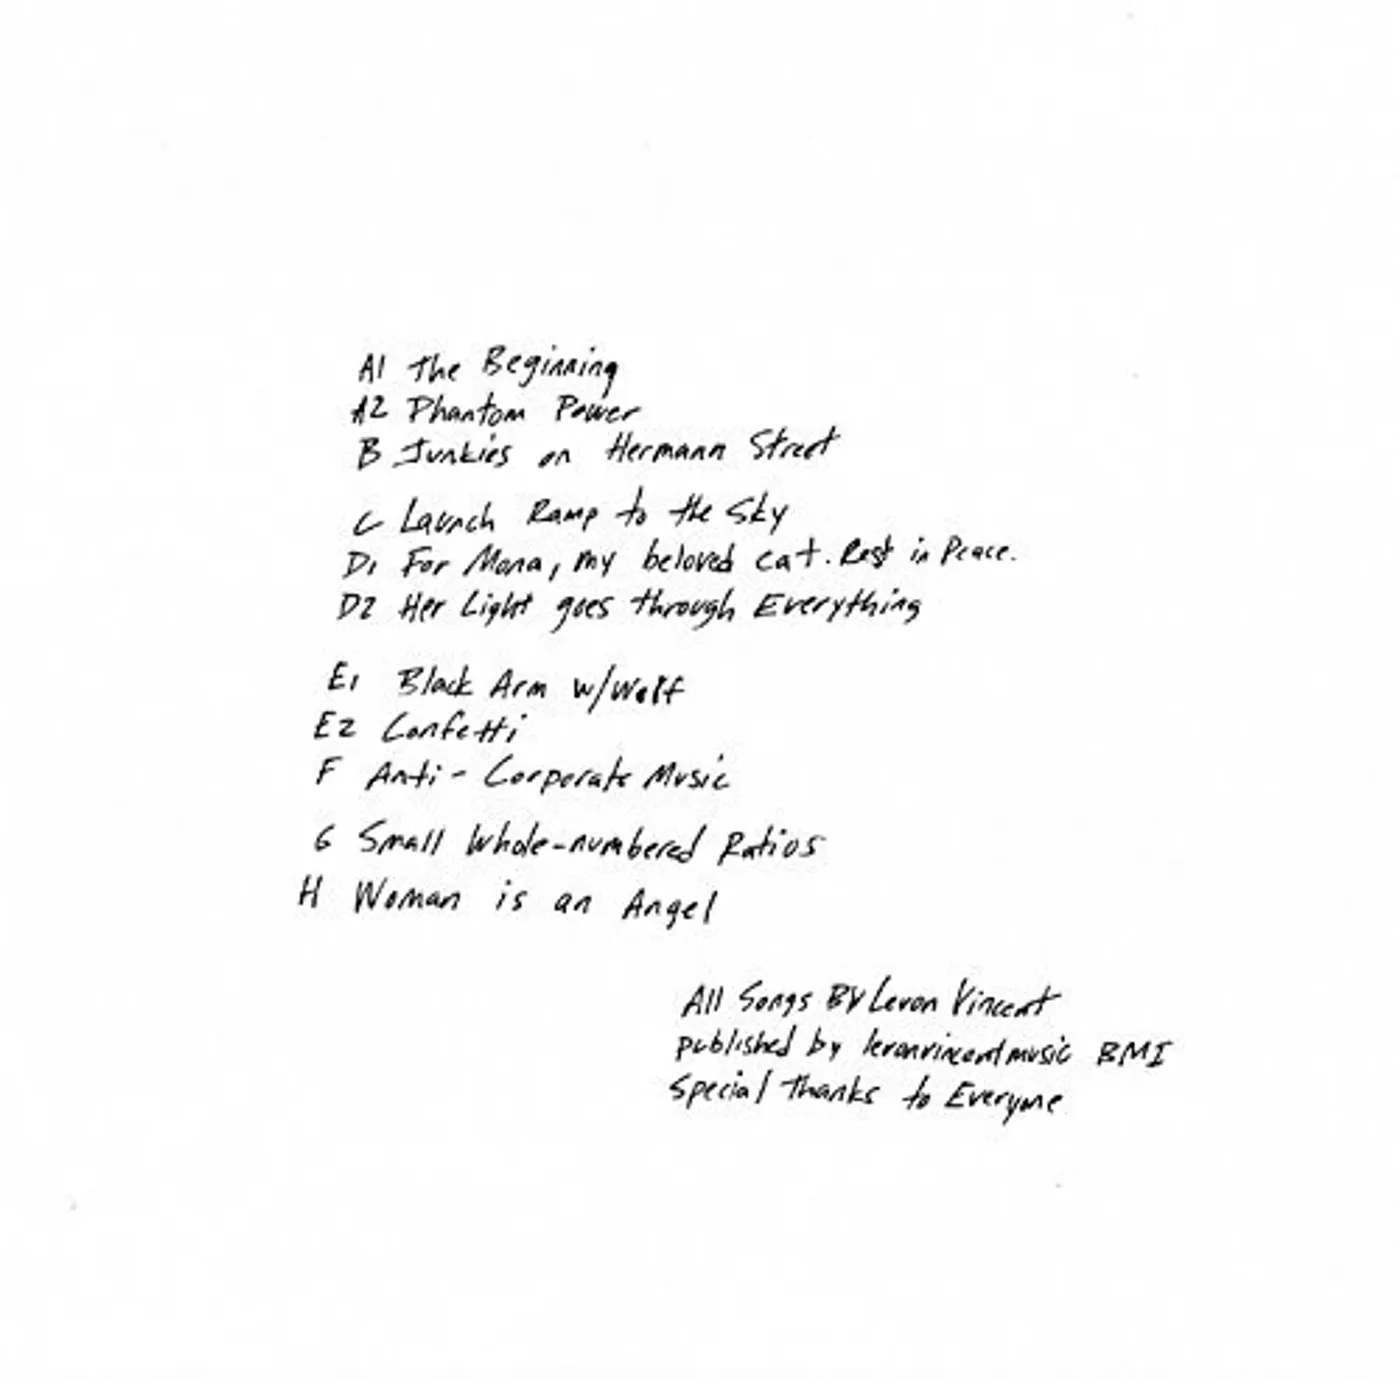 A1 The Beginning
A2 Phantom Power
B Junkies on Hermann Street
C Launch Ramp to the Sky
D1 For Mona, my beloved cat. Rest in Peace.
D2 Her Light goes through Everything
E1 Black Arm w/Wolf
E2 Confetti
F Anti-Corporate Music
G Small Whole-numbered Ratios
H Woman is an Angel
All Songs BY Levon Vincent
published by levonvincentmusic BMI
Special Thanks to Everyone